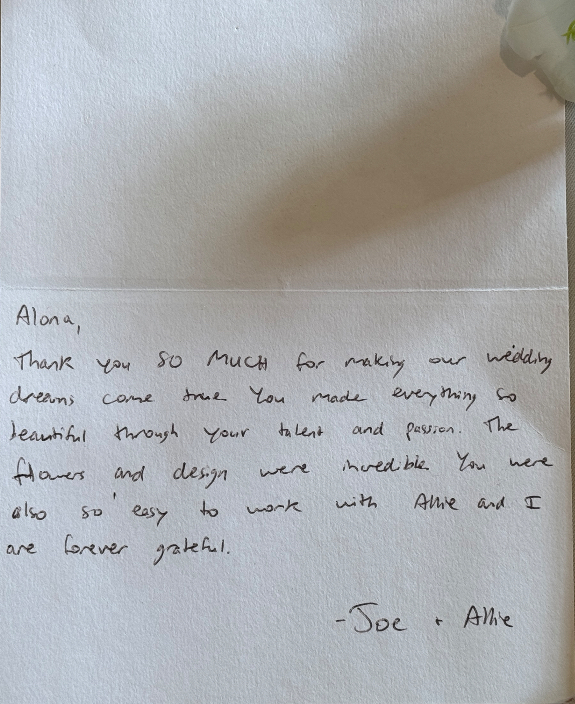 Alona,
Thank you SO MUCH for making our wedding
dreams come true You made everything so
beautiful through your talent and passion. The
flowers and design were incredible You were
also so easy to work with Allie and I
are forever grateful.
- Joe + Allie